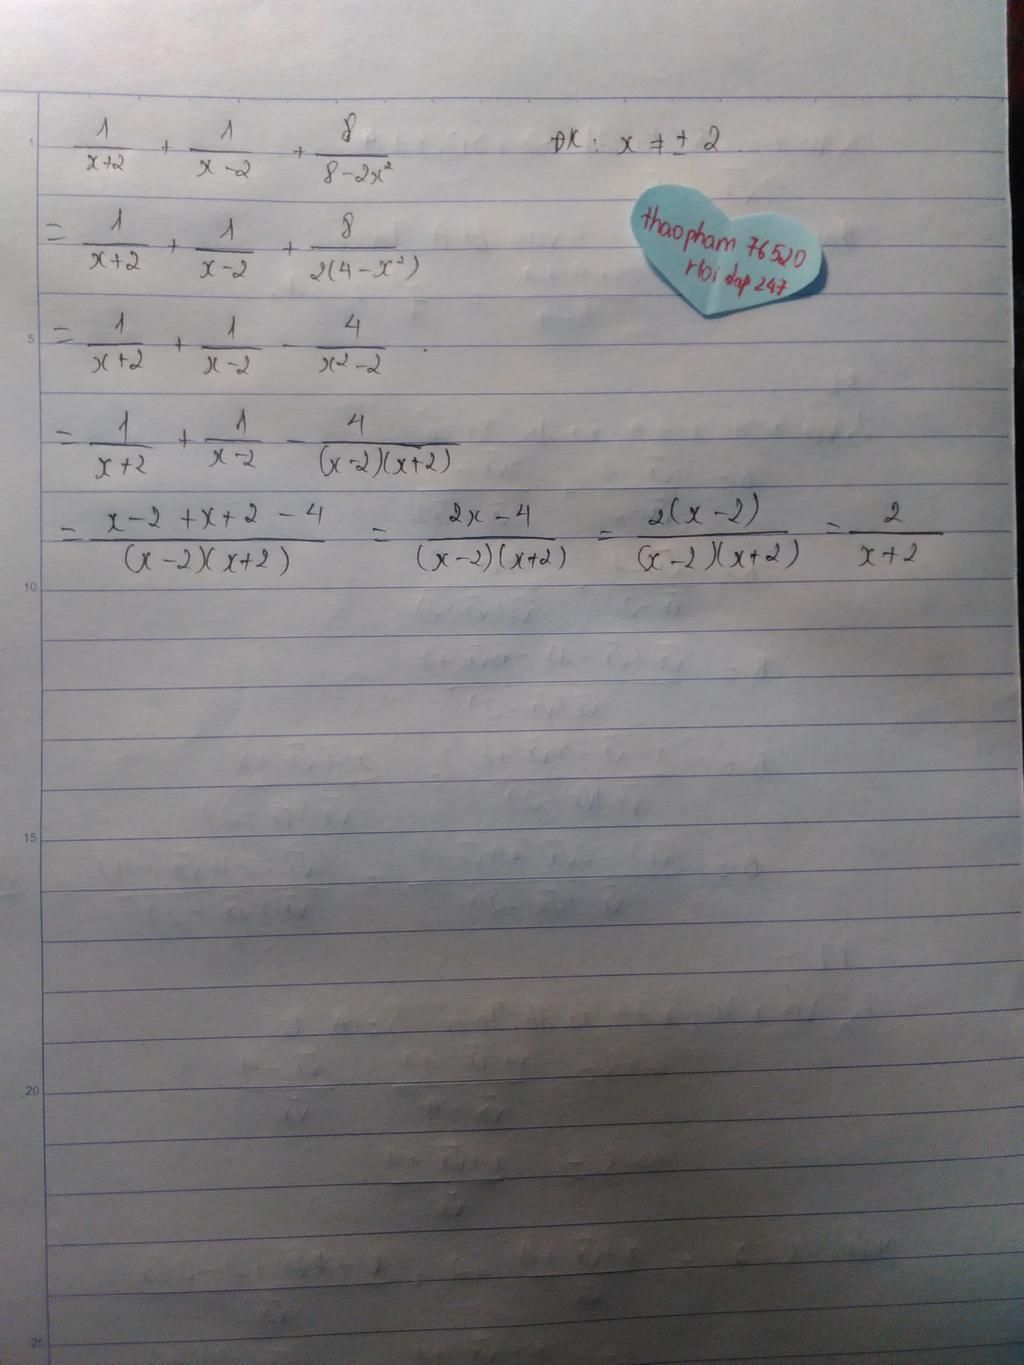 1/(x+2) + 1/(x-2) + 8/(8-2x²) ĐK: x ≠ ± 2
= 1/(x+2) + 1/(x-2) + 8/(2(4-x²))
thaopham 76520
Hoi dap 247
= 1/(x+2) + 1/(x-2) - 4/(x²-2)
= 1/(x+2) + 1/(x-2) - 4/((x-2)(x+2))
= (x-2+x+2-4)/((x-2)(x+2)) = (2x-4)/((x-2)(x+2)) = 2(x-2)/((x-2)(x+2)) = 2/(x+2)
1
5
10
15
20
25